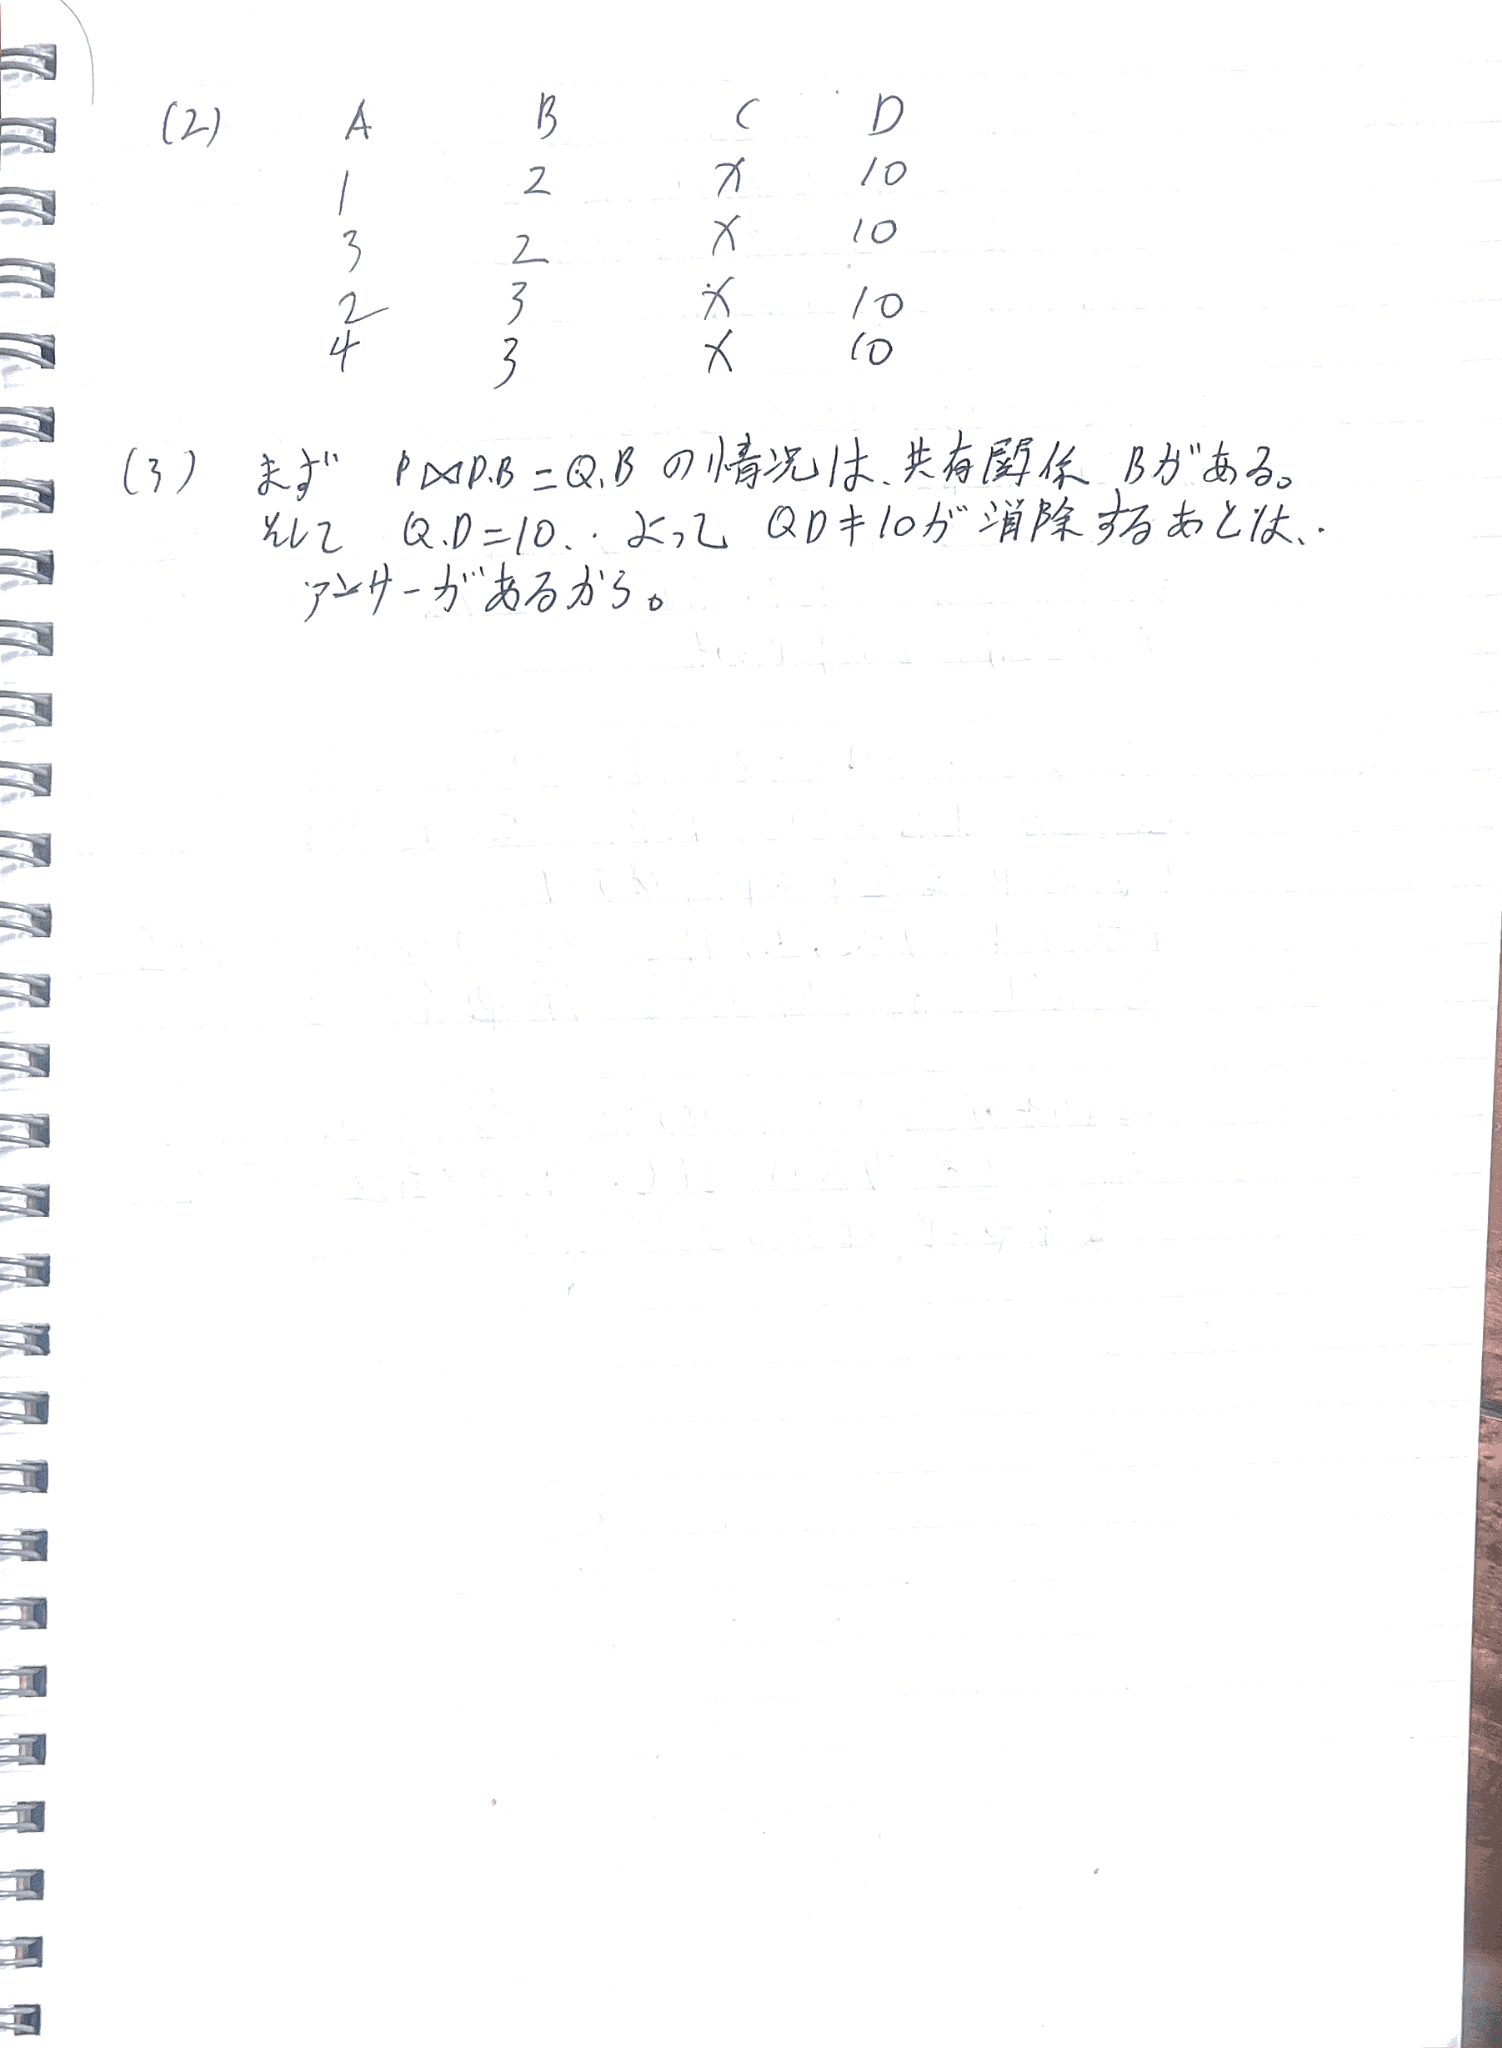 (2) A B C D
1 2 x 10
3 2 x 10
2 3 x 10
4 3 x 10
(3) まず P⋈P.B=Q.Bの情況は、共有関係 Bがある。
そして Q.D=10.. よって QD≠10が消除するあとは、.
アンサーがあるから。